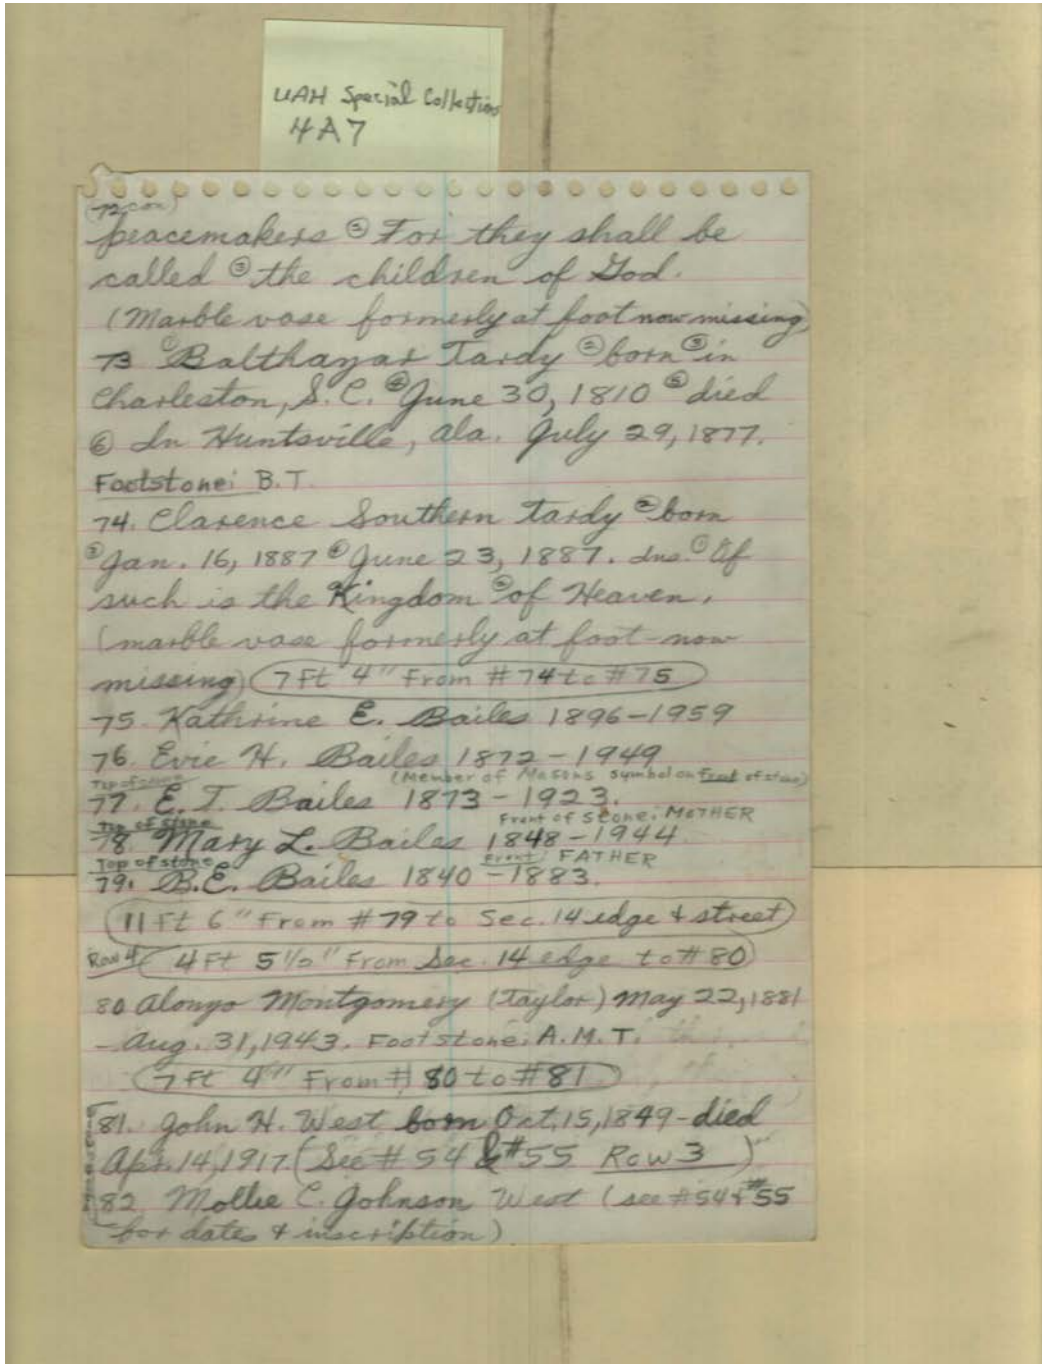 UAH Special Collections
4A7
(72 con)
peacemakers ② For they shall be
called ③ the children of God.
(Marble vase formerly at foot now missing)
73 ① Balthazar Tardy ② born ③ in
Charleston, S.C. ④ June 30, 1810 ⑤ died
⑥ In Huntsville, Ala. July 29, 1877.
Footstone: B.T.
74. Clarence Southern Tardy ② born
③ Jan. 16, 1887 ④ June 23, 1887. Ins. ① Of
such is the Kingdom ② of Heaven.
(marble vase formerly at foot - now
missing) 7 Ft 4" From #74 to #75
75. Kathrine E. Bailes 1896-1959
76. Evie H. Bailes 1872-1949
Top of stone (Member of Masons symbol on Front of stone)
77. E. T. Bailes 1873-1923.
Top of stone Front of stone: MOTHER
78. Mary L. Bailes 1848-1944
Top of stone Front: FATHER
79. B.E. Bailes 1840-1883.
11 Ft 6" From #79 to Sec. 14 edge & street
Row 4 4 Ft 5 1/2" From Sec. 14 edge to #80
80 Alonzo Montgomery (Taylor) May 22, 1881
- Aug. 31, 1943. Footstone: A.M.T.
7 Ft 4" From # 80 to #81
81. John H. West born Oct. 15, 1849 - died
Apr. 14, 1917. (See # 54 & #55 Row 3)
82. Mollie C. Johnson West (see #54 & #55
for dates & inscription)